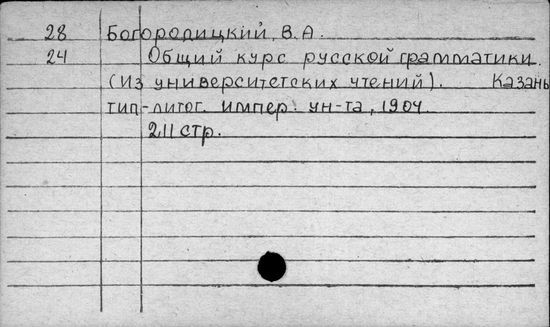 28 Богородицкий, В.А.
24 Общий курс русской грамматики.
(Из университетских чтений). Казань
тип-литог. импер. ун-та, 1904.
211 стр.